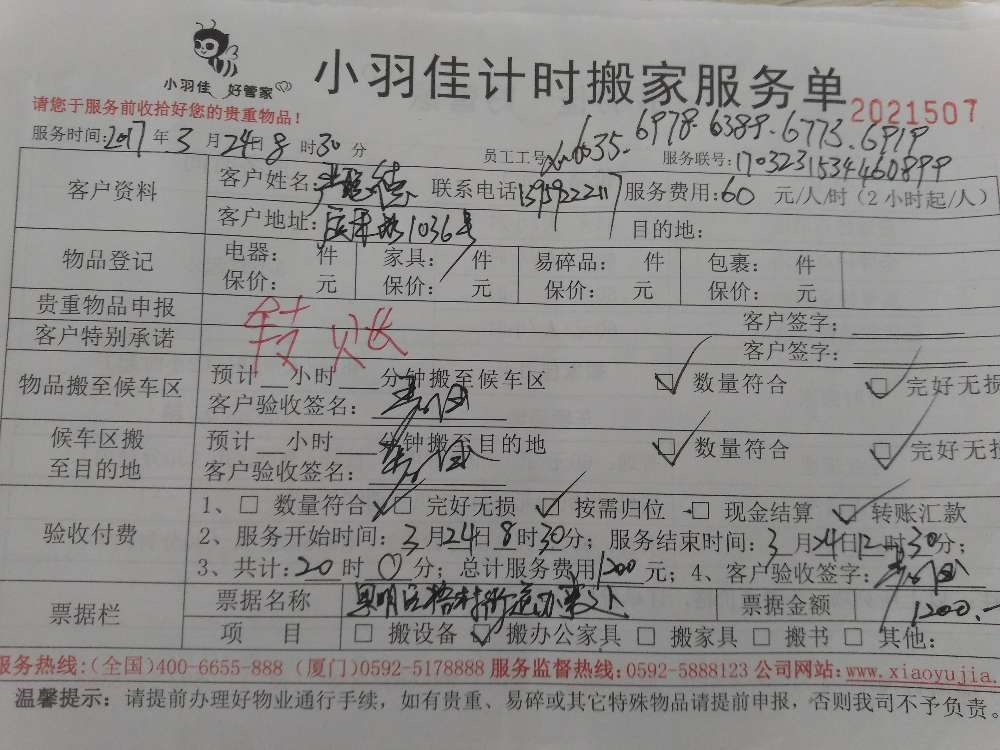 小羽佳 好管家
小羽佳计时搬家服务单
2021507
请您于服务前收拾好您的贵重物品！
服务时间:2017年 3 月 24日 8 时 30 分 员工工号: 6635. 6978. 6389. 6773. 6919
服务联号: 1703231534460899
客户资料 客户姓名: 联系电话 13959222117 服务费用: 60 元/人/时（2小时起/人）
客户地址: 1036号 目的地:
物品登记 电器: 件 家具: 件 易碎品: 件 包裹: 件
保价: 元 保价: 元 保价: 元 保价: 元
贵重物品申报 客户签字:
转账
客户特别承诺 客户签字:
物品搬至候车区 预计__小时___分钟搬至候车区 数量符合 完好无损
客户验收签名:
候车区搬至目的地 预计__小时___分钟搬至目的地 数量符合 完好无损
客户验收签名:
验收付费 1、□ 数量符合 □ 完好无损 □ 按需归位 □ 现金结算 □ 转账汇款
2、服务开始时间: 3月24日8时30分; 服务结束时间: 3月24日12时30分;
3、共计: 20 时 0 分; 总计服务费用 1200 元; 4、客户验收签字:
票据栏 票据名称 票据金额 1200.-
项 目 □ 搬设备 □ 搬办公家具 □ 搬家具 □ 搬书 □ 其他:
服务热线:(全国)400-6655-888 (厦门)0592-5178888 服务监督热线: 0592-5888123 公司网站: www.xiaoyujia.
温馨提示: 请提前办理好物业通行手续，如有贵重、易碎或其它特殊物品请提前申报，否则我司不予负责。